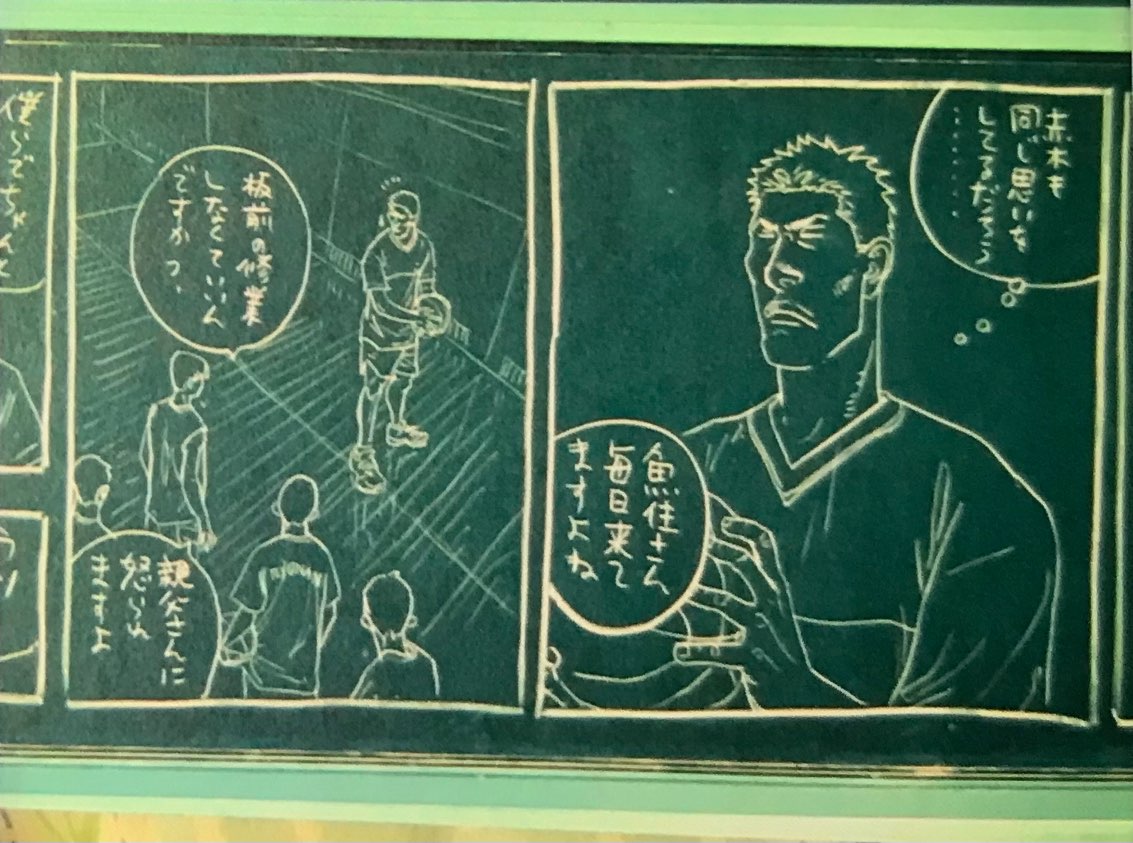 赤木も
同じ思いを
してるだろう
……
魚住さん
毎日来て
ますよね
板前の修業
しなくていいん
ですかっ、
親父さんに
怒られ
ますよ
RYONAN
僕らでちゃんと